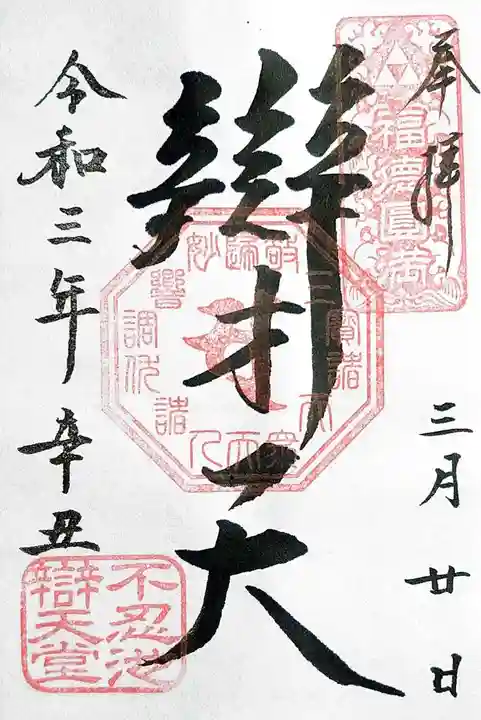 奉拝
三月廿日
辯才天
令和三年辛丑
福徳圓満
不忍池
辯天堂